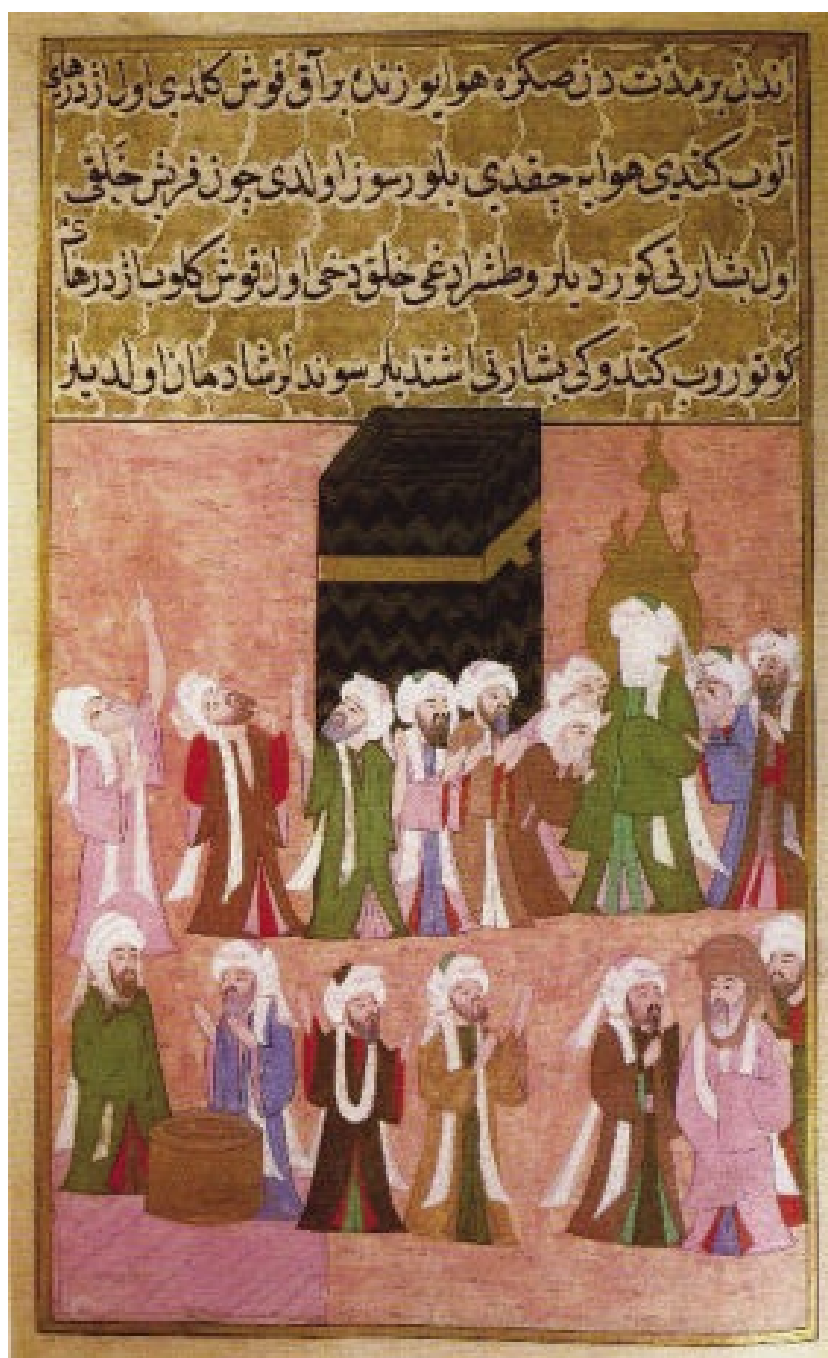 اندن بر مدّت دن صكره هوا یوزندن بر آق قوش كلدی اول اژدرهایی
آلوب كتدی هوایه چقدی بللورسوز اولدی چون قریش خَلقی
اول بشارتی كوردیلر و طشرادغی خلق دخی اول قوش كلوب اژدرهایی
كوتوروب كتدوكی بشارتی اشتدیلر سوندلر شادمان اولدیلر